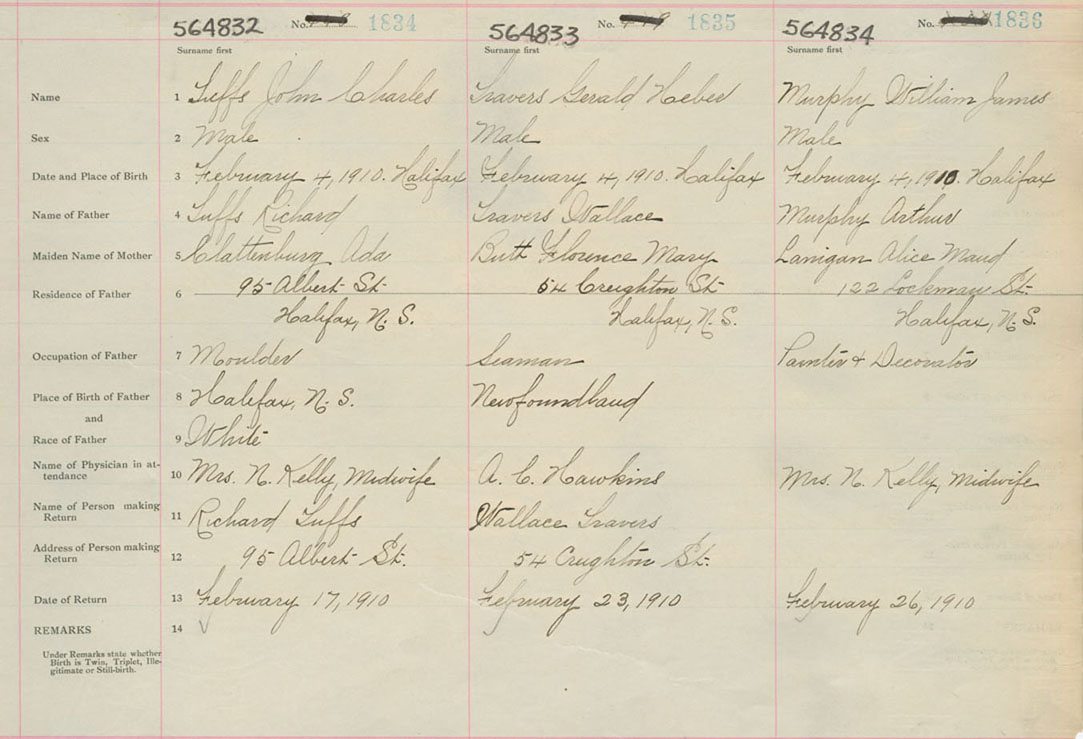 564832 No. 1834 564833 No. 1835 564834 No. 1836
Surname first Surname first Surname first
Name 1 Tuffs John Charles Travers Gerald Heber Murphy William James
Sex 2 Male Male Male
Date and Place of Birth 3 February 4, 1910. Halifax February 4, 1910. Halifax February 4, 1910. Halifax
Name of Father 4 Tuffs Richard Travers Wallace Murphy Arthur
Maiden Name of Mother 5 Clattenburg Ada Butt Florence Mary Lanigan Alice Maud
Residence of Father 6 95 Albert St. 54 Creighton St. 122 Lockman St.
Halifax, N.S. Halifax, N.S. Halifax, N.S.
Occupation of Father 7 Moulder Seaman Painter & Decorator
Place of Birth of Father 8 Halifax, N.S. Newfoundland
and
Race of Father 9 White
Name of Physician in at-
tendance 10 Mrs. N. Kelly, Midwife A. C. Hawkins Mrs. N. Kelly, Midwife
Name of Person making
Return 11 Richard Tuffs Wallace Travers
Address of Person making
Return 12 95 Albert St. 54 Creighton St.
Date of Return 13 February 17, 1910 February 23, 1910 February 26, 1910
REMARKS 14
Under Remarks state whether
Birth is Twin, Triplet, Ille-
gitimate or Still-birth.